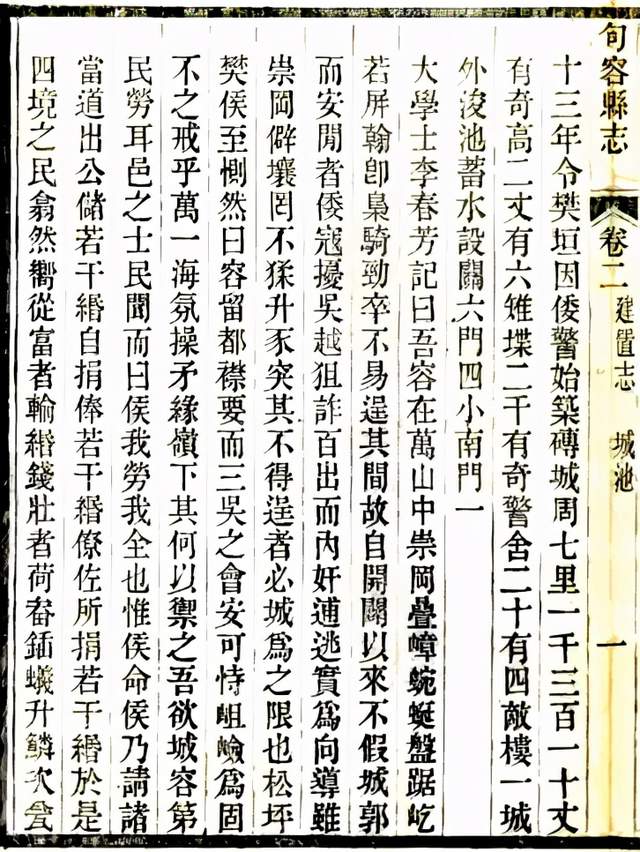 句容縣志 卷二 建置志 城池 一
十三年令樊垣因倭警始築磚城周七里一千三百一十丈
有奇高二丈有六雉堞二千有奇警舍二十有四敵樓一城
外浚池蓄水設關六門四小南門一
大學士李春芳記曰吾容在萬山中崇岡疊嶂蜿蜒盤踞屹
若屏翰卽梟騎勁卒不易逞其間故自開闢以來不假城郭
而安閒者倭寇擾吳越狙詐百出而內奸逋逃實爲向導雖
崇岡僻壤罔不猱升豕突其不得逞者必城爲之限也松坪
樊侯至惻然曰容留都襟要而三吳之會安可恃岨嶮爲固
不之戒乎萬一海氛操矛緣嶺下其何以禦之吾欲城容第
民勞耳邑之士民聞而曰侯我勞我全也惟侯命侯乃請諸
當道出公儲若干緡自捐俸若干緡僚佐所捐若干緡於是
四境之民翕然嚮從富者輸緡錢壯者荷畚鍤蟻升鱗次瓮